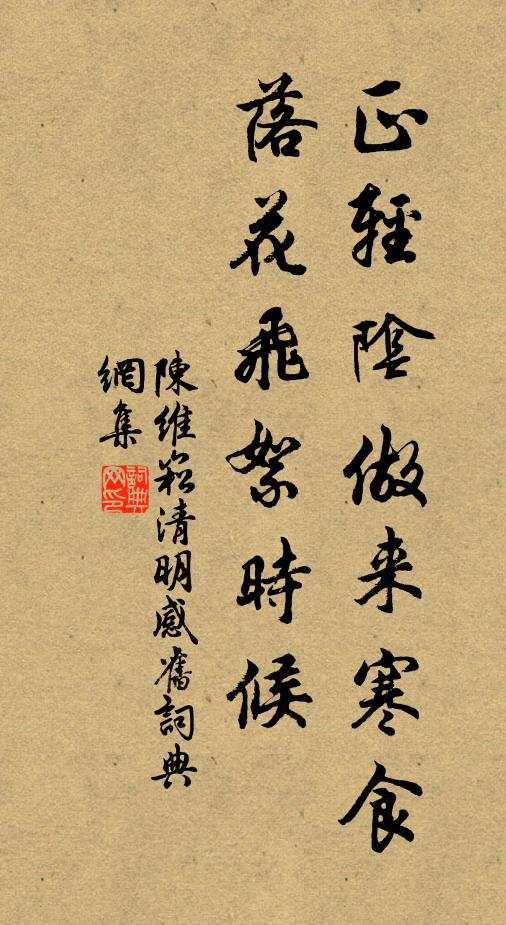 正輕陰做来寒食
落花飛絮時候
陳維崧清明感舊詞典
網集
詞典网印